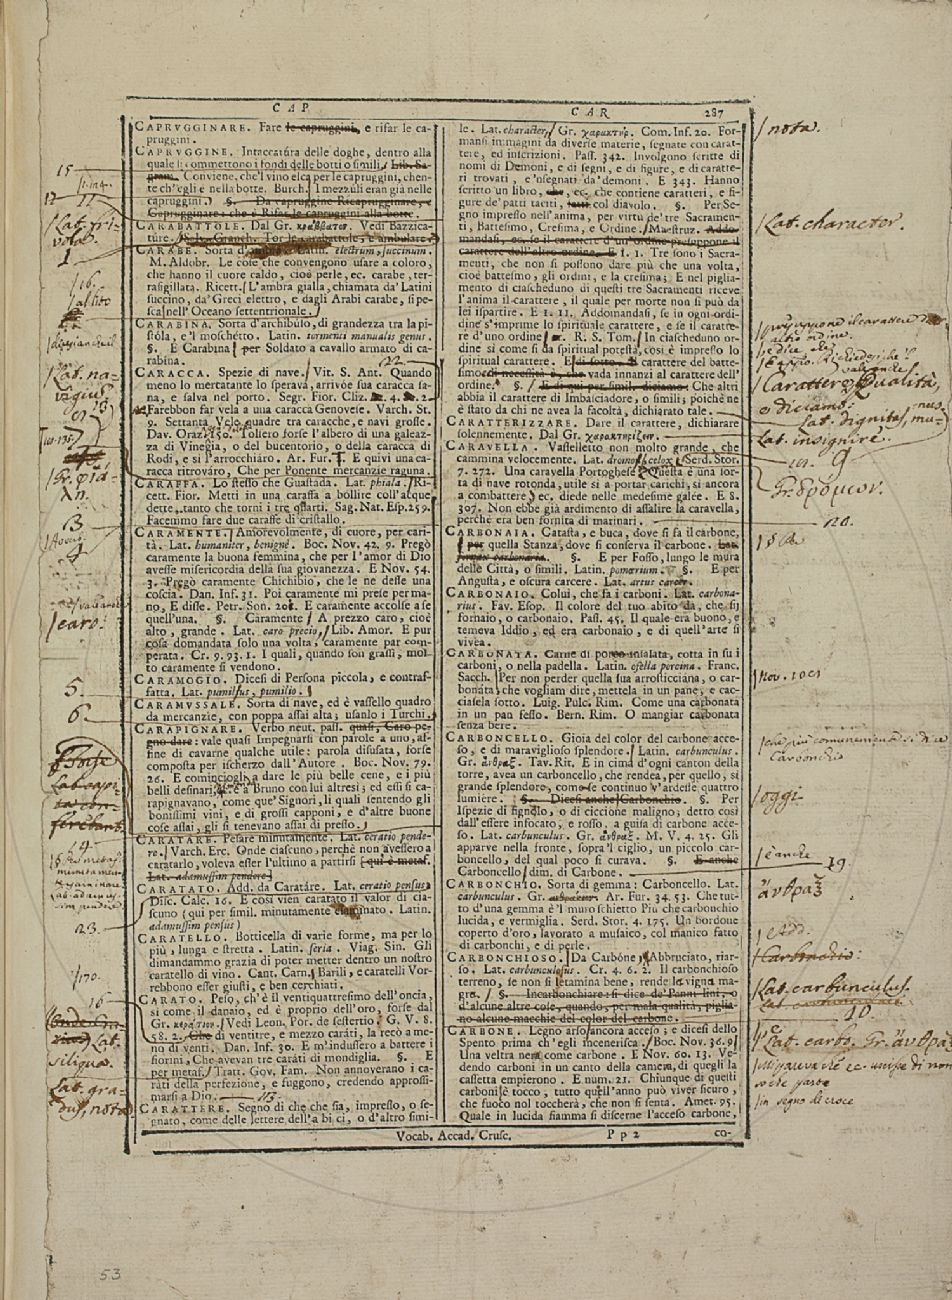 CAP
CAR 287
CAPRVGGINARE. Fare le capruggini, e rifar le ca-
pruggini.
CAPRVGGINE. Intaccatura delle doghe, dentro alla
quale si commettono i fondi delle botti o simili.
Conviene, che'l vino esca per le capruggini, chen-
te ch'egli è nella botte. Burch. I mezzuli eran già nelle
capruggini. §. Da capruggine Ricapruggginare, e
Capruggginare: che è Rifar le capruggini alla botte.
CARABATTOLE. Dal Gr. κράββατον. Vedi Bazzica-
ture.
CARABE. Sorta d' Latin. electrum, succinum.
M. Aldobr. Le cose che convengono usare a coloro,
che hanno il cuore caldo, cioè perle, ec. carabe, ter-
rasigillata. Ricett. L'ambra gialla, chiamata da' Latini
succino, da' Greci elettro, e dagli Arabi carabe, si pe-
sca nell'Oceano settentrionale.
CARABINA. Sorta d'archibuso, di grandezza tra la pi-
stola, e'l moschetto. Latin. tormenti manualis genus.
§. E Carabina per Soldato a cavallo armato di ca-
rabina.
CARACCA. Spezie di nave. Vit. S. Ant. Quando
meno lo mercatante lo sperava, arrivòe sua caracca sa-
na, e salva nel porto. Segr. Fior. Cliz. 4. 2.
Farebbon far vela a una caracca Genovese. Varch. St.
9. Settanta Vele quadre tra caracche, e navi grosse.
Dav. Oraz. 150. Tolsero forse l'albero di una galeaz-
za di Vinegia, o del bucentorio, o della caracca di
Rodi, e si l'arrocchiáro. Ar. Fur. E quivi una ca-
racca ritrováro, Che per Ponente mercanzie raguna.
CARAFFA. Lo stesso che Guastada. Lat. phiala. Ri-
cett. Fior. Metti in una caraffa a bollire coll'acque
dette, tanto che torni i tre quarti. Sag. Nat. Esp. 259.
Facemmo fare due caraffe di cristallo.
CARAMENTE. Amorevolmente, di cuore, per cari-
tà. Lat. humaniter, benignè. Boc. Nov. 42. 9. Pregò
caramente la buona femmina, che per l'amor di Dio
avesse misericordia della sua giovanezza. E Nov. 54.
3. Pregò caramente Chichibio, che le ne desse una
coscia. Dan. Inf. 31. Poi caramente mi prese per ma-
no, E disse. Petr. Son. 201. E caramente accolse a se
quell'una. §. Caramente A prezzo caro, cioè
alto, grande. Lat. caro precio. Lib. Amor. E pur
cosa domandata solo una volta, caramente par com-
perata. Cr. 9. 93. 1. I quali, quando son grassi, mol-
to caramente si vendono.
CARAMOGIO. Dicesi di Persona piccola, e contraf-
fatta. Lat. pumilius, pumilio.
CARAMVSSALE. Sorta di nave, ed è vassello quadro
da mercanzie, con poppa assai alta; usanlo i Turchi.
CARAPIGNARE. Verbo neut. pass. quasi, Caro pe-
gno dare: vale quasi Impegnarsi con parole a uno, af-
fine di cavarne qualche utile: parola disusata, forse
composta per ischerzo dall'Autore. Boc. Nov. 79.
26. E cominciogli a dare le più belle cene, e i più
belli desinari, e a Bruno con lui altresì; ed essi si ca-
rapignavano, come que' Signori, li quali sentendo gli
bonissimi vini, e di grossi capponi, e d'altre buone
cose assai, gli si tenevano assai di presso.
CARATARE. Pesare minutamente. Lat. ceratio pende-
re. Varch. Erc. Onde ciascuno, perchè non avessero a
caratarlo, voleva esser l'ultimo a partirsi (qui è metaf.
Lat. adamussim pendere)
CARATATO. Add. da Caratáre. Lat. ceratio pensus.
Disc. Calc. 16. E così vien caratato il valor di cia-
scuno (qui per simil. minutamente esaminato. Latin.
adamussim pensus)
CARATELLO. Botticella di varie forme, ma per lo
più, lunga e stretta. Latin. seria. Viag. Sin. Gli
dimandammo grazia di poter metter dentro un nostro
caratello di vino. Cant. Carn. Barili, e caratelli Vor-
rebbono esser giusti, e ben cerchiati.
CARATO. Peso, ch'è il ventiquattresimo dell'oncia,
si come il danaio, ed è proprio dell'oro, forse dal
Gr. κεράτιον. Vedi Leon. Por. de sestertio. G. V. 8.
58. 2. Che di ventitre, e mezzo caráti, la recò a me-
no di venti. Dan. Inf. 30. E m'indussero a battere i
fiorini, Che avevan tre caráti di mondiglia. §. E
per metaf. Tratt. Gov. Fam. Non annoverano i ca-
ráti della perfezione, e fuggono, credendo approssi-
marsi a Dio. 113.
CARATTERE. Segno di che che sia, impresso, o se-
gnato, come delle lettere dell'a bi ci, o d'altro simi-
le. Lat. character. Gr. χαρακτήρ. Com. Inf. 20. For-
mansi immagini da diverse materie, segnate con carat-
tere, ed inscrizioni. Pass. 342. Involgono scritte di
nomi di Demoni, e di segni, e di figure, e di caratte-
ri trovati, e 'nsegnati da' demoni. E 343. Hanno
scritto un libro, che, ec. che contiene caratteri, e fi-
gure de' patti taciti, tutti col diavolo. §. Per Se-
gno impresso nell'anima, per virtù de' tre Sacramen-
ti, Battesimo, Cresima, e Ordine. Maestruz. Addo-
mandasi, ec. se il carattere d'un'ordine presuppone il
carattere dell'altro ordine. E 1. 1. Tre sono i Sacra-
menti, che non si possono dare più che una volta,
cioè battesimo, gli ordini, e la cresima; E nel piglia-
mento di ciascheduno di questi tre Sacramenti riceve
l'anima il carattere, il quale per morte non si può da
lei ispartire. E 1. 11. Addomandasi, se in ogni ordi-
dine s'imprime lo spirituale carattere, e se il caratte-
re d'uno ordine. R. S. Tom. In ciascheduno or-
dine si come si dà spirital potestà, così è impresso lo
spiritual carattere. E di sotto. Il carattere del batte-
simo di necessità è, che vada innanzi al carattere dell'
ordine. §. E di qui per simil. diciamo: Che altri
abbia il carattere di Imbasciadore, o simili; poichè ne
è stato da chi ne avea la facoltà, dichiarato tale.
CARATTERIZZARE. Dare il carattere, dichiarare
solennemente. Dal Gr. χαρακτηρίζειν.
CARAVELLA. Vasselletto non molto grande, che
cammina velocemente. Lat. dromo, celox. Serd. Stor.
7. 272. Una caravella Portoghese (Questa è una sor-
ta di nave rotonda, utile sì a portar carichi, sì ancora
a combattere) ec. diede nelle medesime galée. E 8.
307. Non ebbe già ardimento di assalire la caravella,
perchè era ben fornita di marinari.
CARBONAIA. Catasta, e buca, dove si fa il carbone,
per quella Stanza, dove si conserva il carbone. Lat.
fornax carbonaria. §. E per Fosso, lungo le mura
delle Città, o simili. Latin. pomœrium. §. E per
Angusta, e oscura carcere. Lat. artus carcer.
CARBONAIO. Colui, che fa i carboni. Lat. carbona-
rius. Fav. Esop. Il colore del tuo abito dà, che sij
fornaio, o carbonaio. Pass. 45. Il quale era buono, e
temeva Iddio, ed era carbonaio, e di quell'arte si
vivea.
CARBONATA. Carne di porco insalata, cotta in su i
carboni, o nella padella. Latin. ofella porcina. Franc.
Sacch. Per non perder quella sua arrosticciana, o car-
bonata che vogliam dire, mettela in un pane, e cac-
ciasela sotto. Luig. Pulc. Rim. Come una carbonata
in un pan fesso. Bern. Rim. O mangiar carbonata
senza bere.
CARBONCELLO. Gioia del color del carbone acce-
so, e di maraviglioso splendore. Latin. carbunculus.
Gr. ἄνθραξ. Tav. Rit. E in cima d'ogni canton della
torre, avea un carboncello, che rendea, per quello, sì
grande splendore, come se continuo v'ardesse quattro
lumiere. §. Dicesi anche Carbonchio. §. Per
Ispezie di fignolo, o di ciccione maligno; detto così
dall'essere infocato, e rosso, a guisa di carbone acce-
so. Lat. carbunculus. Gr. ἄνθραξ. M. V. 4. 25. Gli
apparve nella fronte, sopra'l ciglio, un piccolo car-
boncello, del qual poco si curava. §. E anche
Carboncello dim. di Carbone.
CARBONCHIO. Sorta di gemma: Carboncello. Lat.
carbunculus. Gr. ἄνθραξ. Ar. Fur. 34. 53. Che tut-
to d'una gemma è 'l muro schietto Più che carbonchio
lucida, e vermiglia. Serd. Stor. 4. 175. Un bordone
coperto d'oro, lavorato a musaico, col manico fatto
di carbonchi, e di perle.
CARBONCHIOSO. Da Carbóne, Abbruciato, riar-
so. Lat. carbunculosus. Cr. 4. 6. 2. Il carbonchioso
terreno, se non si letamina bene, rende la vigna ma-
gra. §. Incarbonchiare: si dice de' Panni lini, o
d'alcune altre cose, quando, per mala qualità, piglia-
no alcune macchie del color del carbone.
CARBONE. Legno arso ancora acceso; e dicesi dello
Spento prima ch'egli incenerisca. Boc. Nov. 36. 9.
Una veltra nera come carbone. E Nov. 60. 13. Ve-
dendo carboni in un canto della camera, di quegli la
cassetta empierono. E num. 21. Chiunque di questi
carboni è tocco, tutto quell'anno può viver sicuro,
che fuoco nol toccherà, che non si senta. Amet. 95.
Quale in lucida fiamma si discerne l'acceso carbone,
Vocab. Accad. Crusc. Pp2 co-
15
12 11
Lat. fri-
vola.
1
16.
Lat. na-
vigius
13
Gr. φιά-
λη.
3
4
caro.
5.
6.
Forse
23.
170.
16
Lat.
siliqua.
Lat. gra-
dus, nota
nota.
Lat. character.
Carattere p Qualità,
e diciamo
Lat. dignitas, mu-
nus.
Lat. insignire.
9
Gr. δρόμων.
20.
Nov.
che più comunemente si dice
Carbonchio
oggi
è anche 19.
ἄνθραξ
Add.
Carbonchio:
Lat. carbunculus.
10.
Lat. carbo. Gr. ἄνθραξ
in segno di croce
53